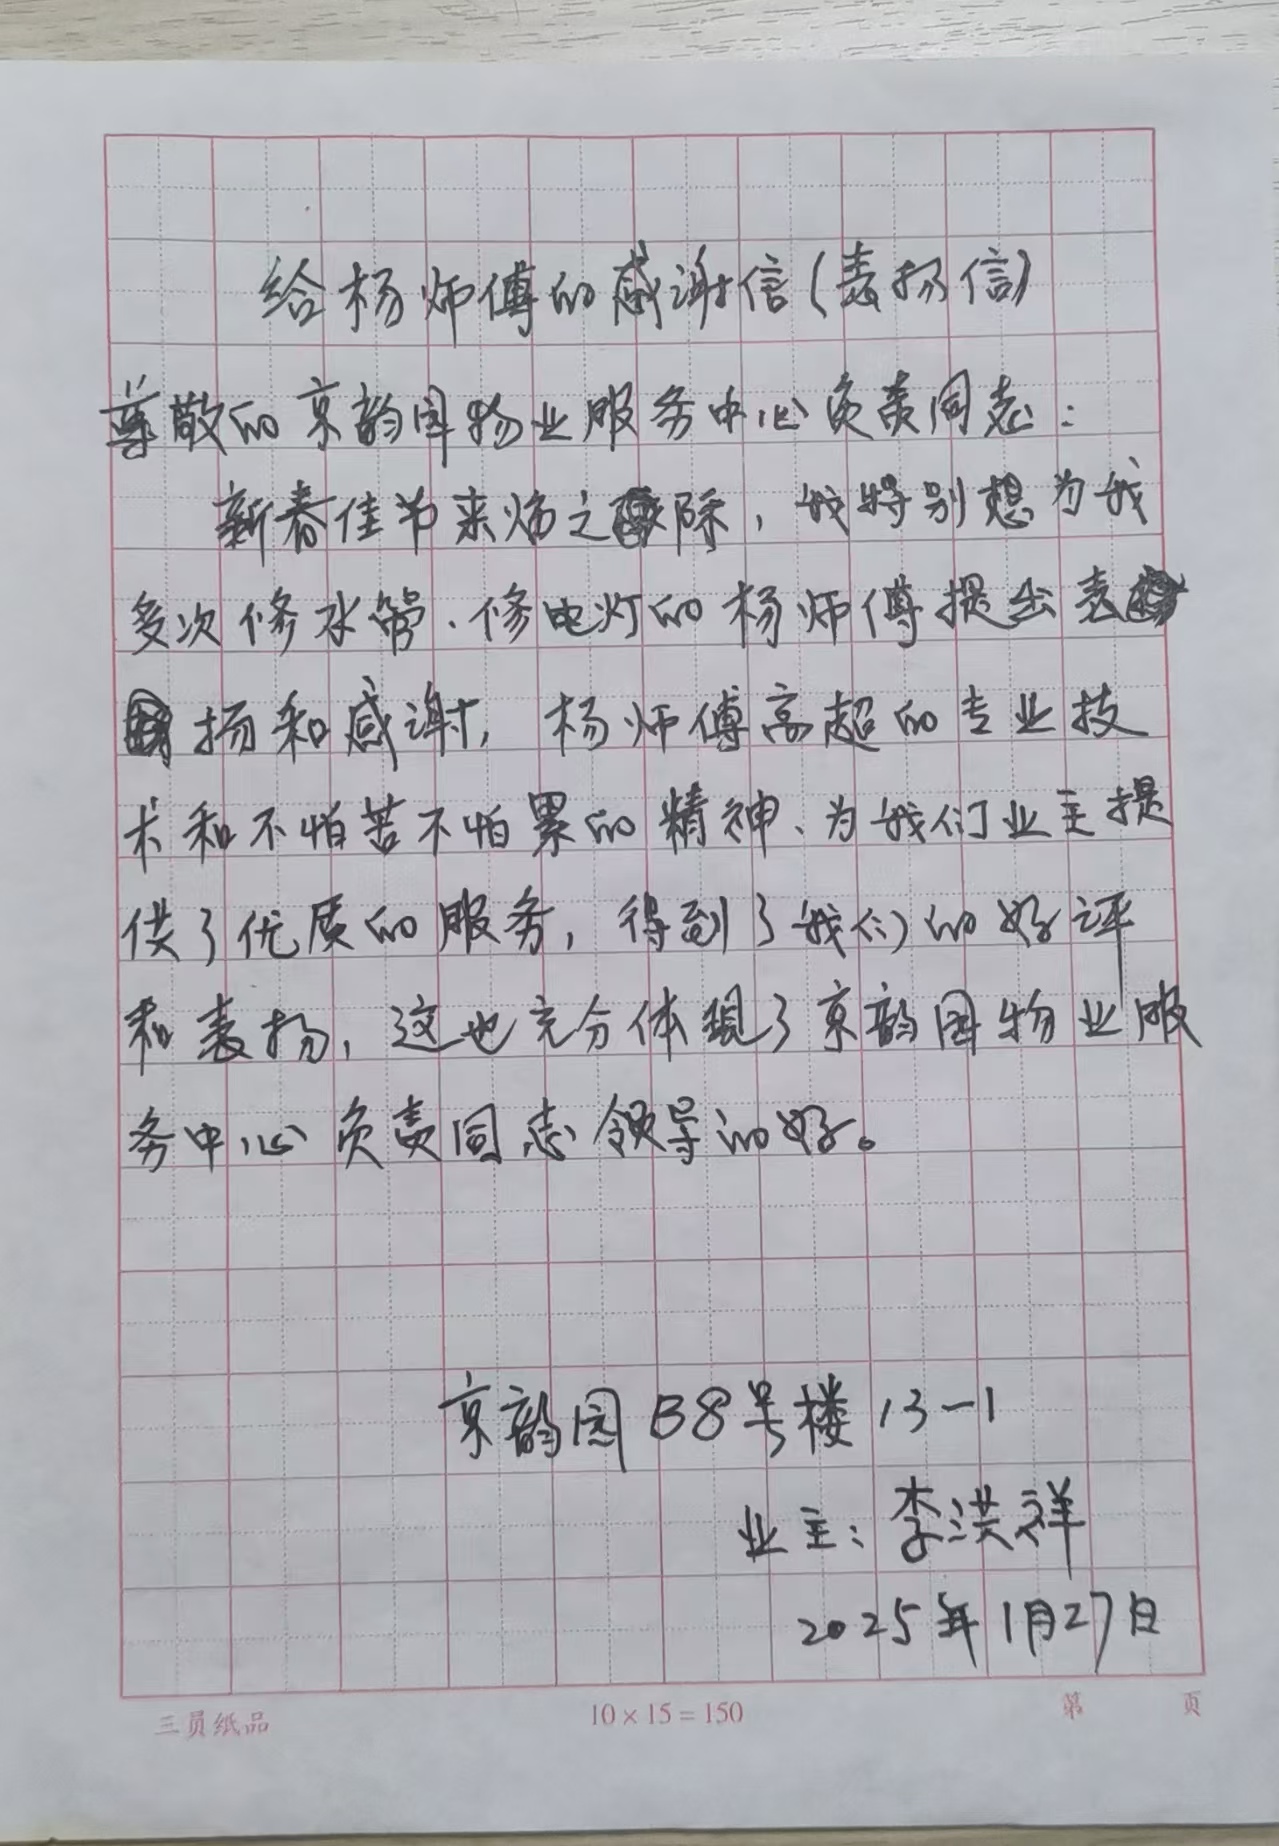 给杨师傅的感谢信(表扬信)
尊敬的京韵园物业服务中心负责同志：
新春佳节来临之际，我特别想为我
多次修水管、修电灯的杨师傅提出表
扬和感谢，杨师傅高超的专业技
术和不怕苦不怕累的精神、为我们业主提
供了优质的服务，得到了我们的好评
和表扬，这也充分体现了京韵园物业服
务中心负责同志领导的好。
京韵园B8号楼13-1
业主：李洪祥
2025年1月27日
三员纸品 10×15=150 第 页